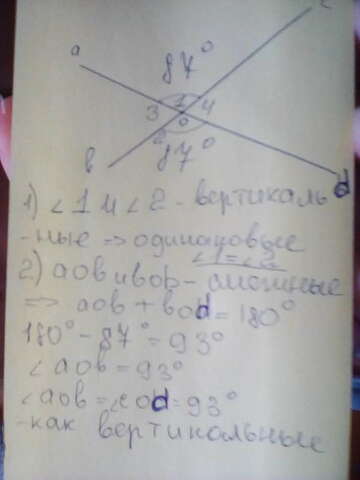 c
a
87°
3 1 4
o
2
в 87° d
1) ∠1 и ∠2 - вертикаль
-ные => одинаковые
∠1=∠2
2) аов и вод - смежные
=> аов + воd = 180°
180° - 87° = 93°
∠аов = 93°
∠аов = ∠соd = 93°
-как вертикальные